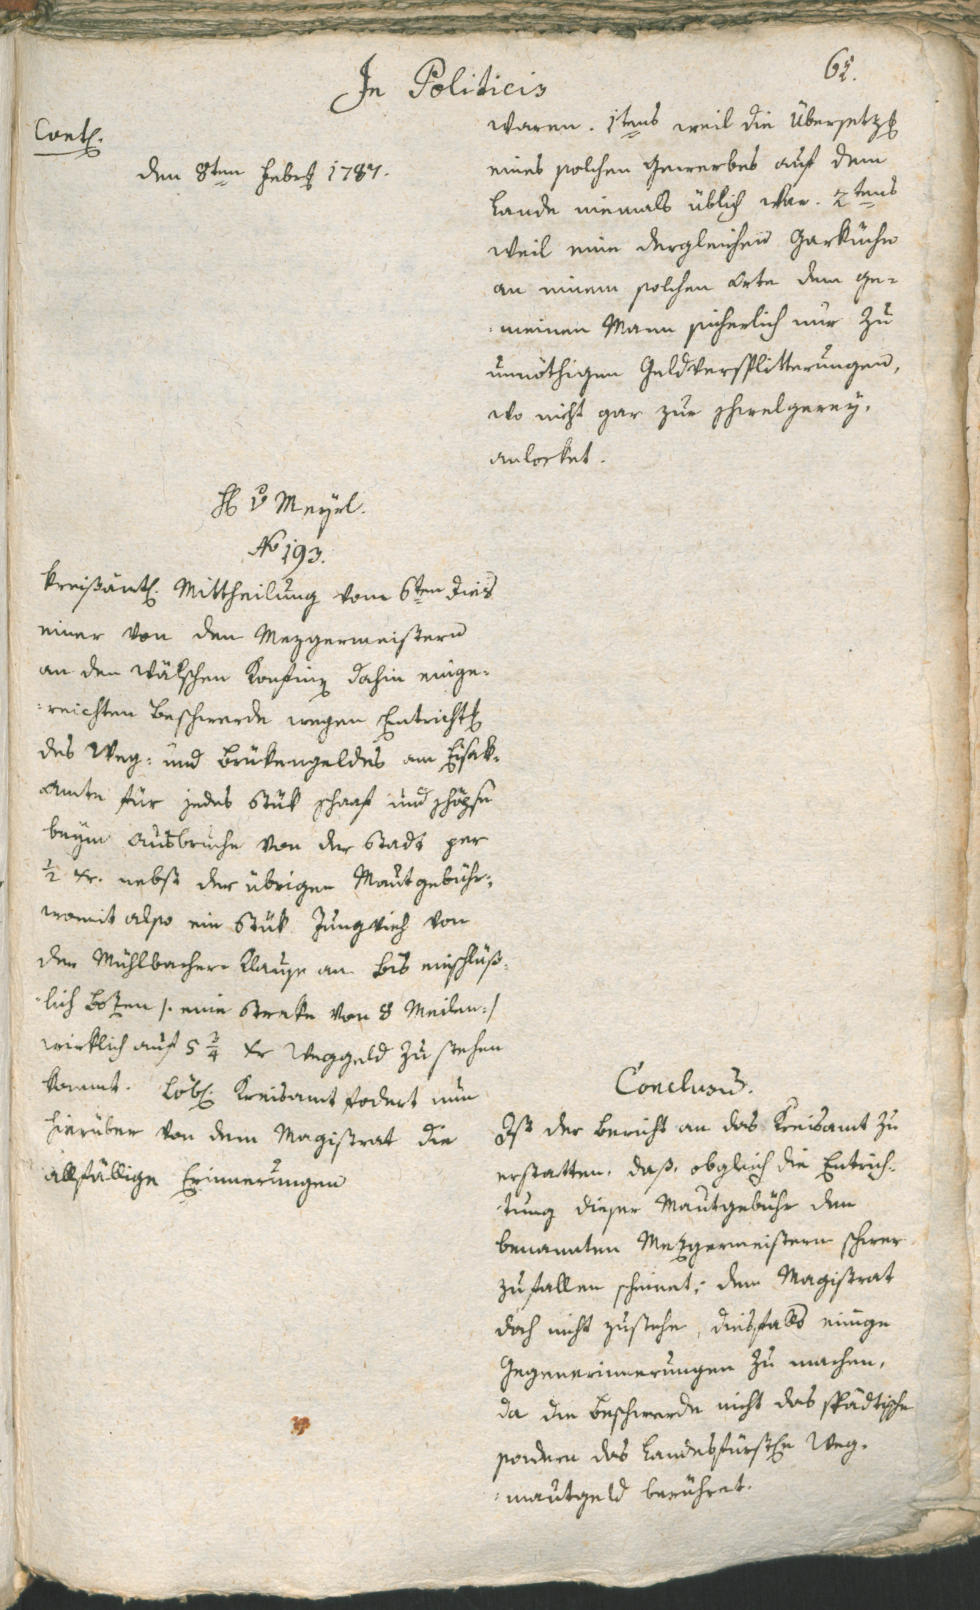 In Politicis
62.
Contỻ.
den 8ten Febrỻ 1787.
waren. 1tens weil die Übersetzỻ
eines solchen Gewerbes auf dem
Lande niemals üblich war. 2tens
weil eine dergleichen Garküche
an einem solchen Orte dem ge=
=meinen Mann sicherlich nur zu
unnöthigen Geldversplitterungen,
wo nicht gar zur schwelgerey,
anlocket.
H v Meyrl.
No 193.
Kreißämtl. Mittheilung vom 6ten dies
einer von den Mezgermeistern
an den wälschen Konfinỻ dahin einge=
=reichten Beschwerde wegen Entrichtỻ
des Weg= und Brükengeldes am Eisak=
amte für jedes Stük schaaf und schöpse
beym Ausbruche von der Stadt per
½ xr. nebst der übrigen Mautgebühr;
womit also ein Stük Jungvieh von
der Mühlbacher Klause an bis einschlüß=
=lich Bozen /: eine Streke von 8 Meilen :/
wirklich auf 5 ¾ xr Weggeld zu stehen
kommt. Löbl. Kreisamt fodert nun
hierüber von dem Magistrat die
allfällige Erinnerungen
Conclusum.
Ist der Bericht an das Kreisamt zu
erstatten, daß, obgleich die Entrich=
=tung dieser Mautgebühr den
benannten Mezgermeistern schwer
zufallen scheinet; dem Magistrat
doch nicht zustehe, diesfalls einige
Gegenerinnerungen zu machen,
da die Beschwerde nicht das städtische
sondern das Landesfürstlỻ Weg=
=mautgeld berühret.